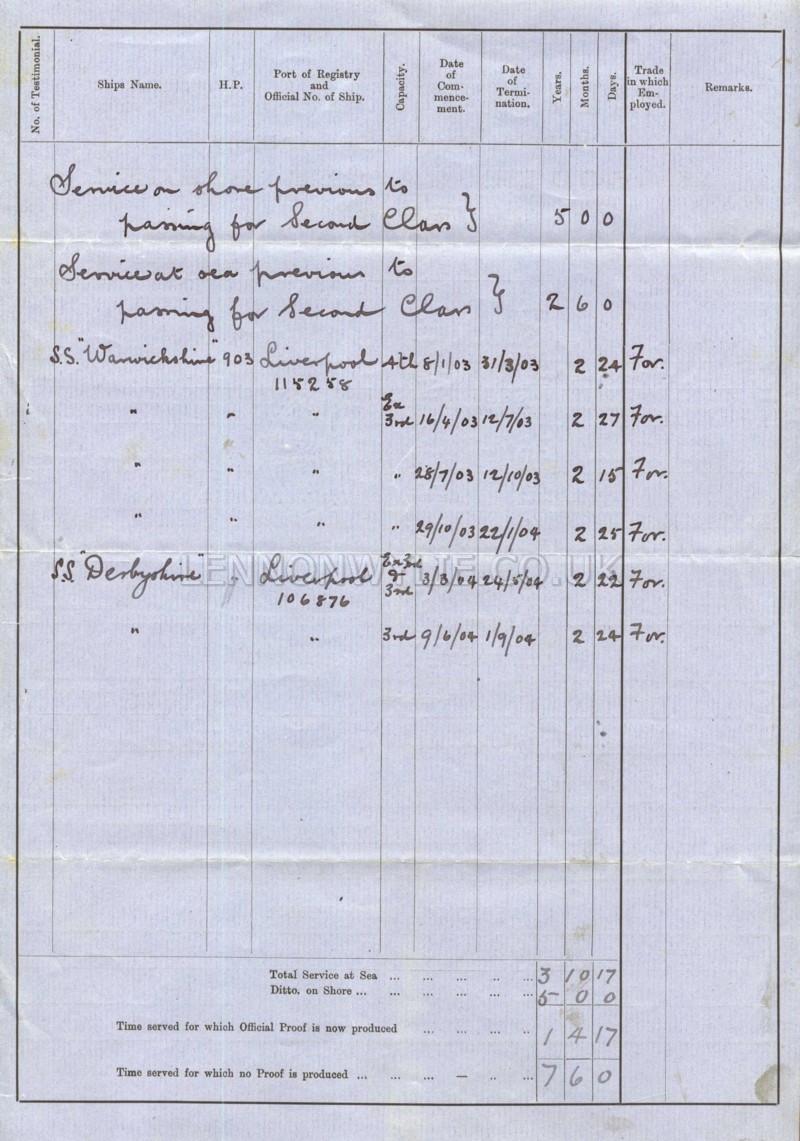 No. of Testimonial. Ships Name. H.P. Port of Registry and Official No. of Ship. Capacity. Date of Com-mence-ment. Date of Termi-nation. Years. Months. Days. Trade in which Em-ployed. Remarks.
Service on shore previous to
passing for Second Class } 5 0 0
Service at sea previous to
passing for Second Class } 2 6 0
S.S. "Warwickshire" 903 Liverpool 4th 8/1/03 31/3/03 2 24 For.
115258
" " " Ex 3rd 16/4/03 12/7/03 2 27 For.
" " " " 28/7/03 12/10/03 2 15 For.
" " " " 29/10/03 22/1/04 2 25 For.
LENNONWYLIE.CO.UK
S.S. "Derbyshire" " Liverpool Ex 3rd & 3rd 3/3/04 24/5/04 2 22 For.
106876
" " 3rd 9/6/04 1/9/04 2 24 For.
Total Service at Sea ... ... ... ... ... 3 10 17
Ditto. on Shore ... ... ... ... ... ... 5 0 0
Time served for which Official Proof is now produced ... ... ... ... 1 4 17
Time served for which no Proof is produced ... ... ... — .. ... 7 6 0